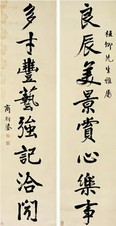 伯卿先生雅属
良辰美景賞心樂事
多才豐藝強記洽聞
商衍鎏